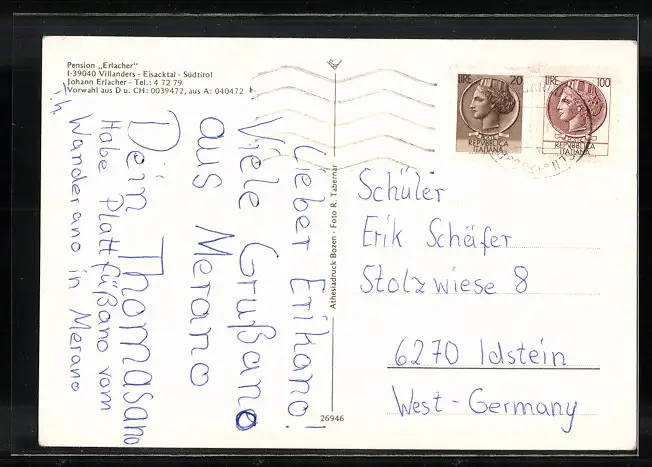 Pension „Erlacher"
I-39040 Villanders - Eisacktal - Südtirol
Johann Erlacher - Tel.: 4 72 79
Vorwahl aus D u. CH: 0039472, aus A: 040472
Lieber Erikano!
Viele Grußano
aus Merano
Dein Thomasano
Habe Plattfüßano vom
Wanderano in Merano
Athesiadruck Bozen - Foto R. Tabernar
26946
LIRE 20
POSTE
REPVBBLICA
ITALIANA
LIRE 100
POSTE
REPVBBLICA
ITALIANA
Schüler
Erik Schäfer
Stolzwiese 8
6270 Idstein
West-Germany